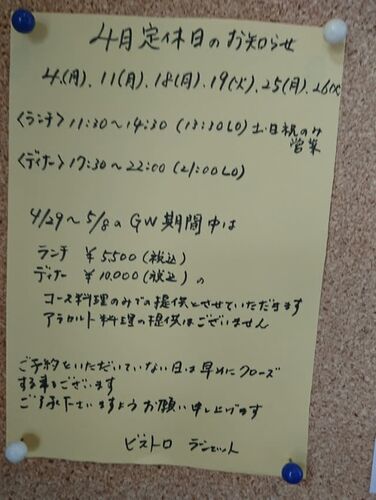 4月定休日のお知らせ
4.(月).11(月).18(月).19(火).25(月).26(火
〈ランチ〉11:30〜14:30 (13:30LO) 土・日・祝のみ
営業
〈ディナー〉17:30〜22:00 (21:00LO)
4/29〜5/8のGW期間中は
ランチ ¥5,500(税込)
ディナー ¥10,000(税込)の
コース料理のみでの提供とさせていただきます
アラカルト料理の提供はございません
ご予約をいただいていない日は早めにクローズ
する事もございます
ご了承下さいますようお願い申し上げます
ビストロ